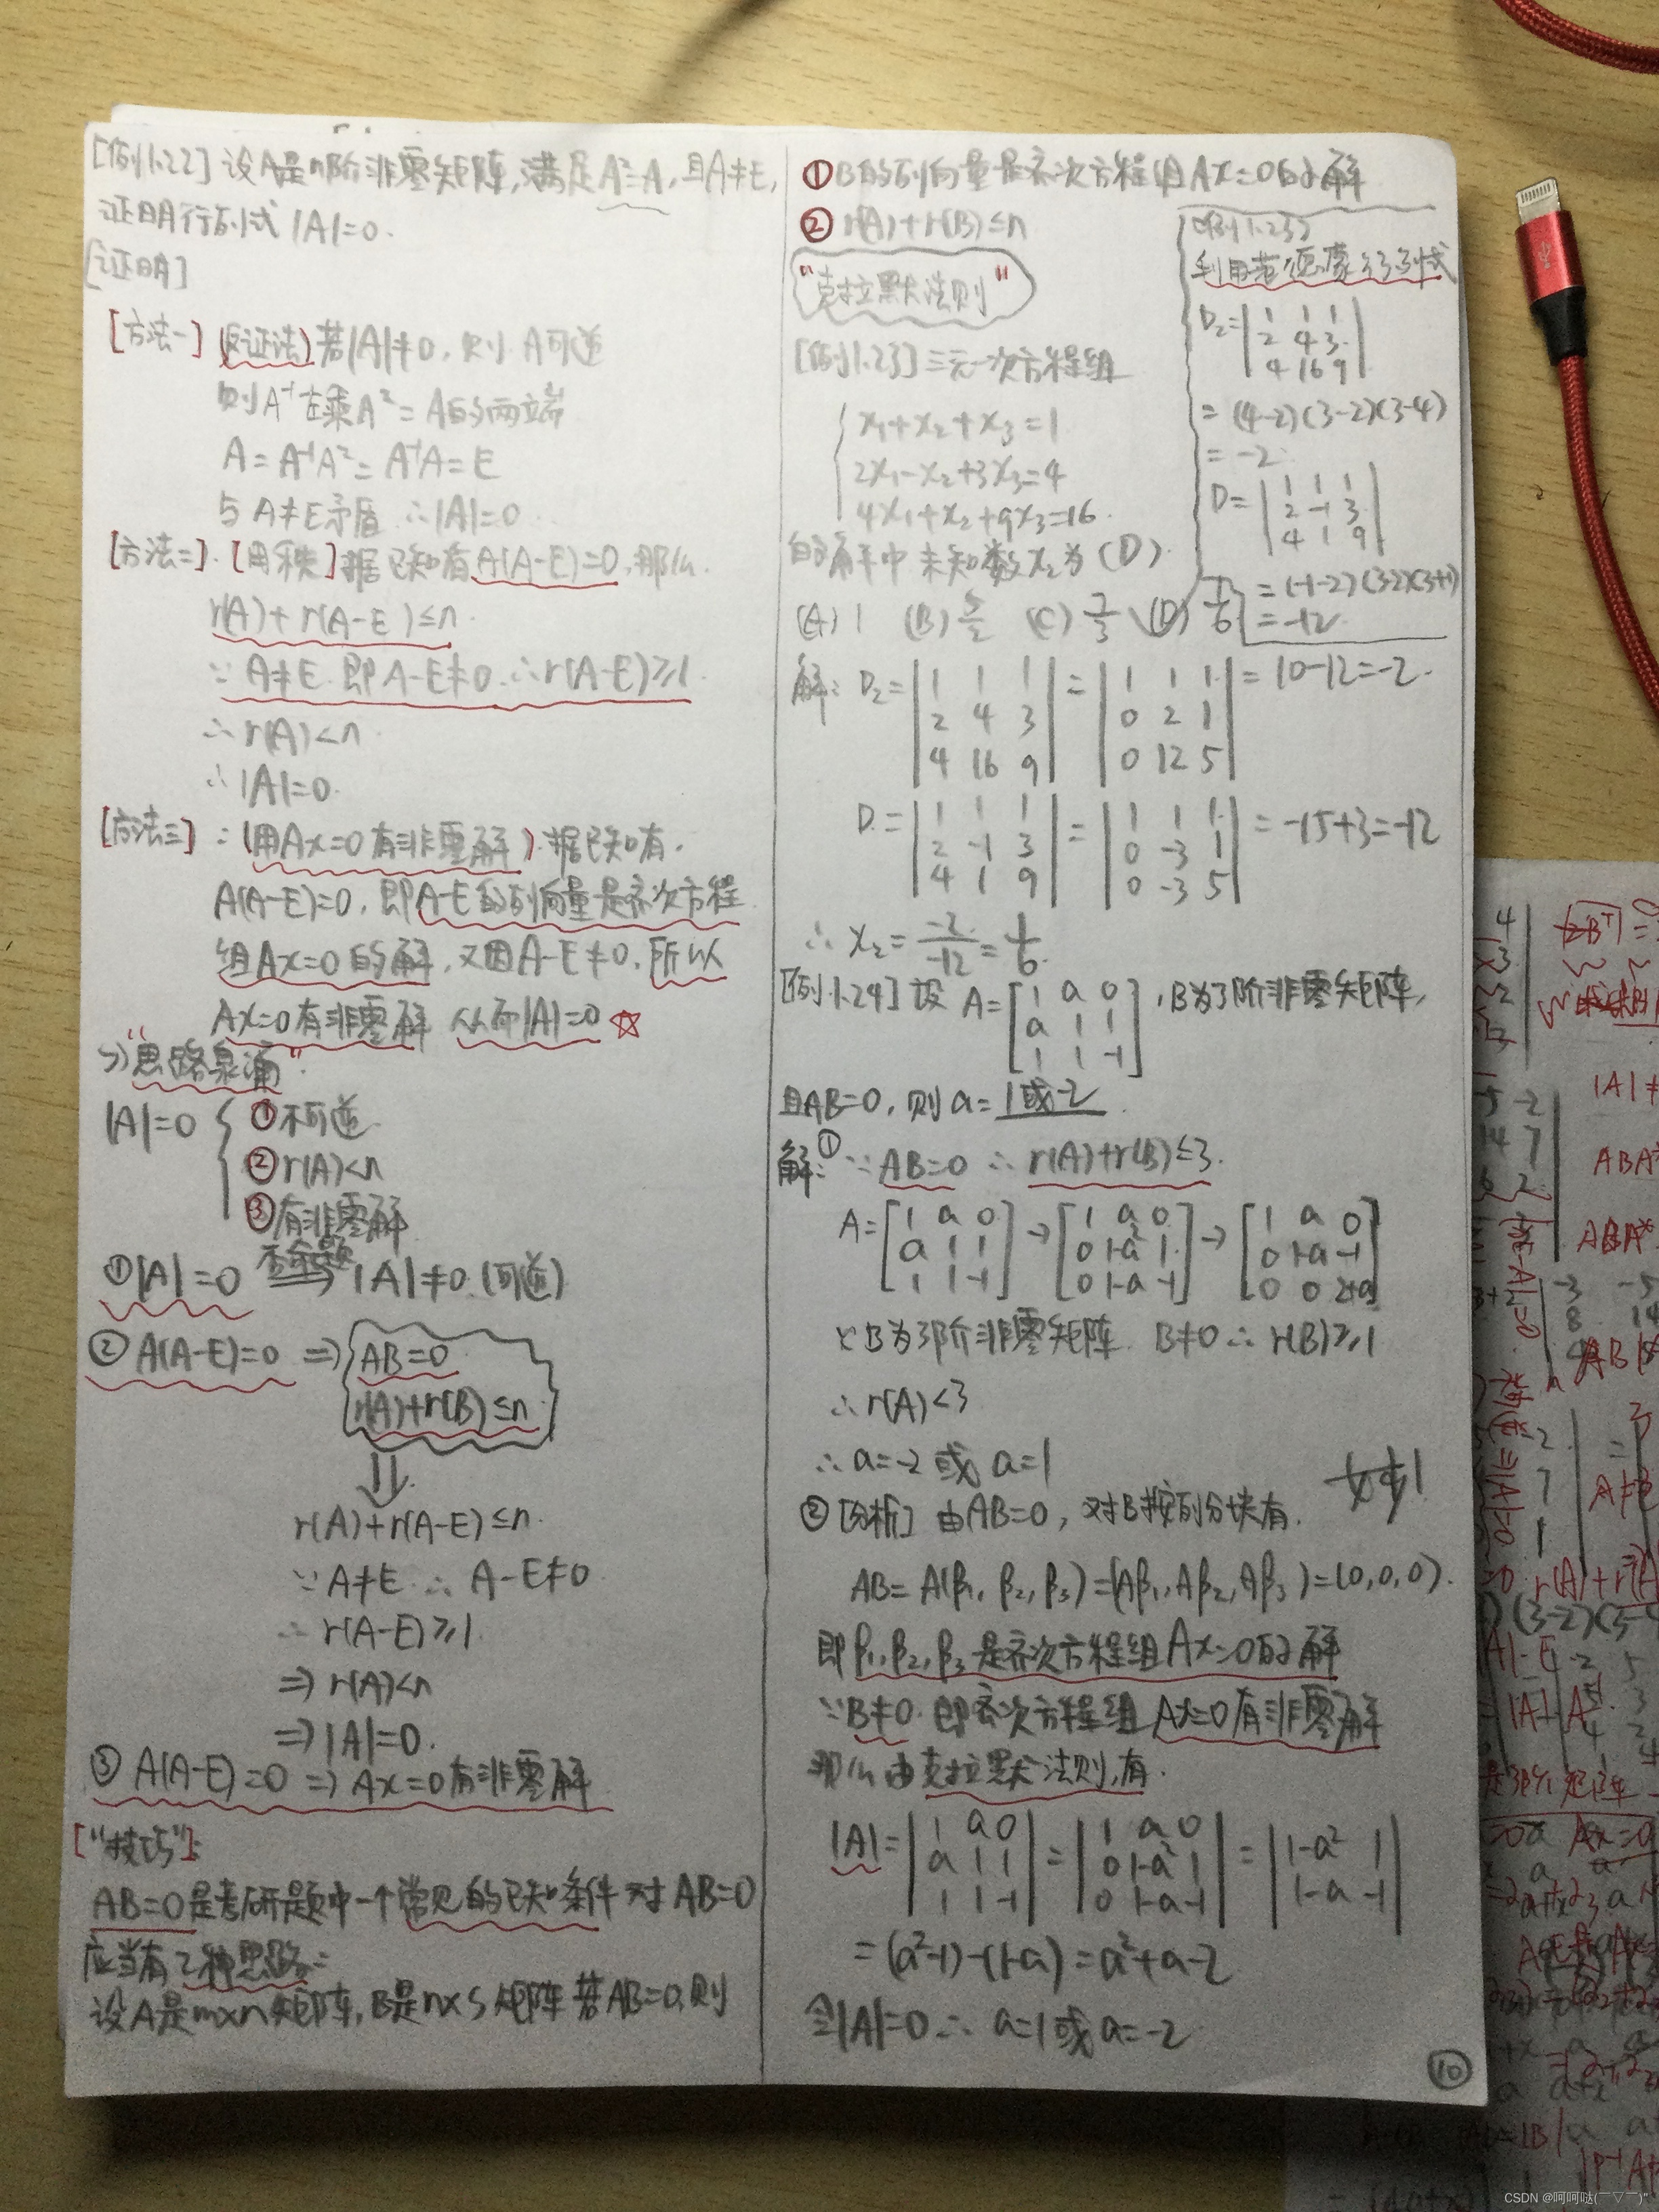 [例1.22] 设A是n阶非零矩阵,满足A²=A,且A≠E,
证明行列式|A|=0.
[证明]
[方法一] (反证法) 若|A|≠0, 则 A可逆
则A⁻¹左乘A²=A的两端
A=A⁻¹A²=A⁻¹A=E
与A≠E矛盾 ∴|A|=0
[方法二]. [用秩] 据已知有A(A-E)=0, 那么
r(A)+r(A-E)≤n.
∵A≠E. 即A-E≠0 ∴r(A-E)≥1
∴r(A)<n
∴|A|=0.
[方法三]: (用Ax=0有非零解) 据已知有.
A(A-E)=0, 即A-E的列向量是齐次方程
组Ax=0的解, 又因A-E≠0, 所以
Ax=0有非零解 从而|A|=0 ☆
=>"思路泉涌"
|A|=0 {
①不可逆
②r(A)<n
③有非零解
①|A|=0 否命题⟹ |A|≠0 (可逆)
② A(A-E)=0 => AB=0
r(A)+r(B)≤n
⇓
r(A)+r(A-E)≤n.
∵A≠E ∴ A-E≠0
∴ r(A-E)≥1
=> r(A)<n
=> |A|=0.
③ A(A-E)=0 => Ax=0有非零解
["技巧"]:
AB=0是考研题中一个常见的已知条件 对AB=0
应当有2种思路:
设A是m×n矩阵, B是n×s矩阵 若AB=0,则
①B的列向量是齐次方程组Ax=0的解
② r(A)+r(B)≤n
"克拉默法则"
[例1.23] 三元一次方程组
x₁+x₂+x₃=1
2x₁-x₂+3x₃=4
4x₁+x₂+9x₃=16.
的解中 未知数x₂为 (D)
(A) 1 (B) 5/2 (C) 7/3 (D) 1/6
例1.23
利用范德蒙行列式
D₂=|1 1 1
2 4 3
4 16 9|
= (4-2)(3-2)(3-4)
= -2
D=|1 1 1
2 -1 3
4 1 9|
= (-1-2)(3-2)(3+1)
= -12
解: D₂=|1 1 1| = |1 1 1| = 10-12=-2.
|2 4 3| |0 2 1|
|4 16 9| |0 12 5|
D=|1 1 1| = |1 1 1| = -15+3=-12
|2 -1 3| |0 -3 1|
|4 1 9| |0 -3 5|
∴ x₂ = -2/-12 = 1/6
[例1.24] 设 A=[1 a 0], B为3阶非零矩阵,
[a 1 1]
[1 1 -1]
且AB=0, 则 a= 1或-2.
解: ① ∵ AB=0 ∴ r(A)+r(B)≤3.
A=[1 a 0] → [1 a 0] → [1 a 0]
[a 1 1] [0 1-a² 1] [0 1-a -1]
[1 1 -1] [0 1-a -1] [0 0 2+a]
∵B为3阶非零矩阵 B≠0 ∴ r(B)≥1
∴r(A)<3
∴a=-2 或 a=1
② [分析] 由AB=0, 对B按列分块有. 妙!
AB=A(β₁, β₂, β₃)=(Aβ₁, Aβ₂, Aβ₃)=(0,0,0).
即β₁,β₂,β₃是齐次方程组Ax=0的解
∵B≠0. 即齐次方程组Ax=0有非零解
那么由克拉默法则,有.
|A|=|1 a 0| = |1 a 0| = |1-a² 1|
|a 1 1| |0 1-a² 1| |1-a -1|
|1 1 -1| |0 1-a -1|
= (a²-1)-(1-a)=a²+a-2
令|A|=0 ∴ a=1或a=-2
⑩
CSDN @呵呵哒(￣▽￣)"